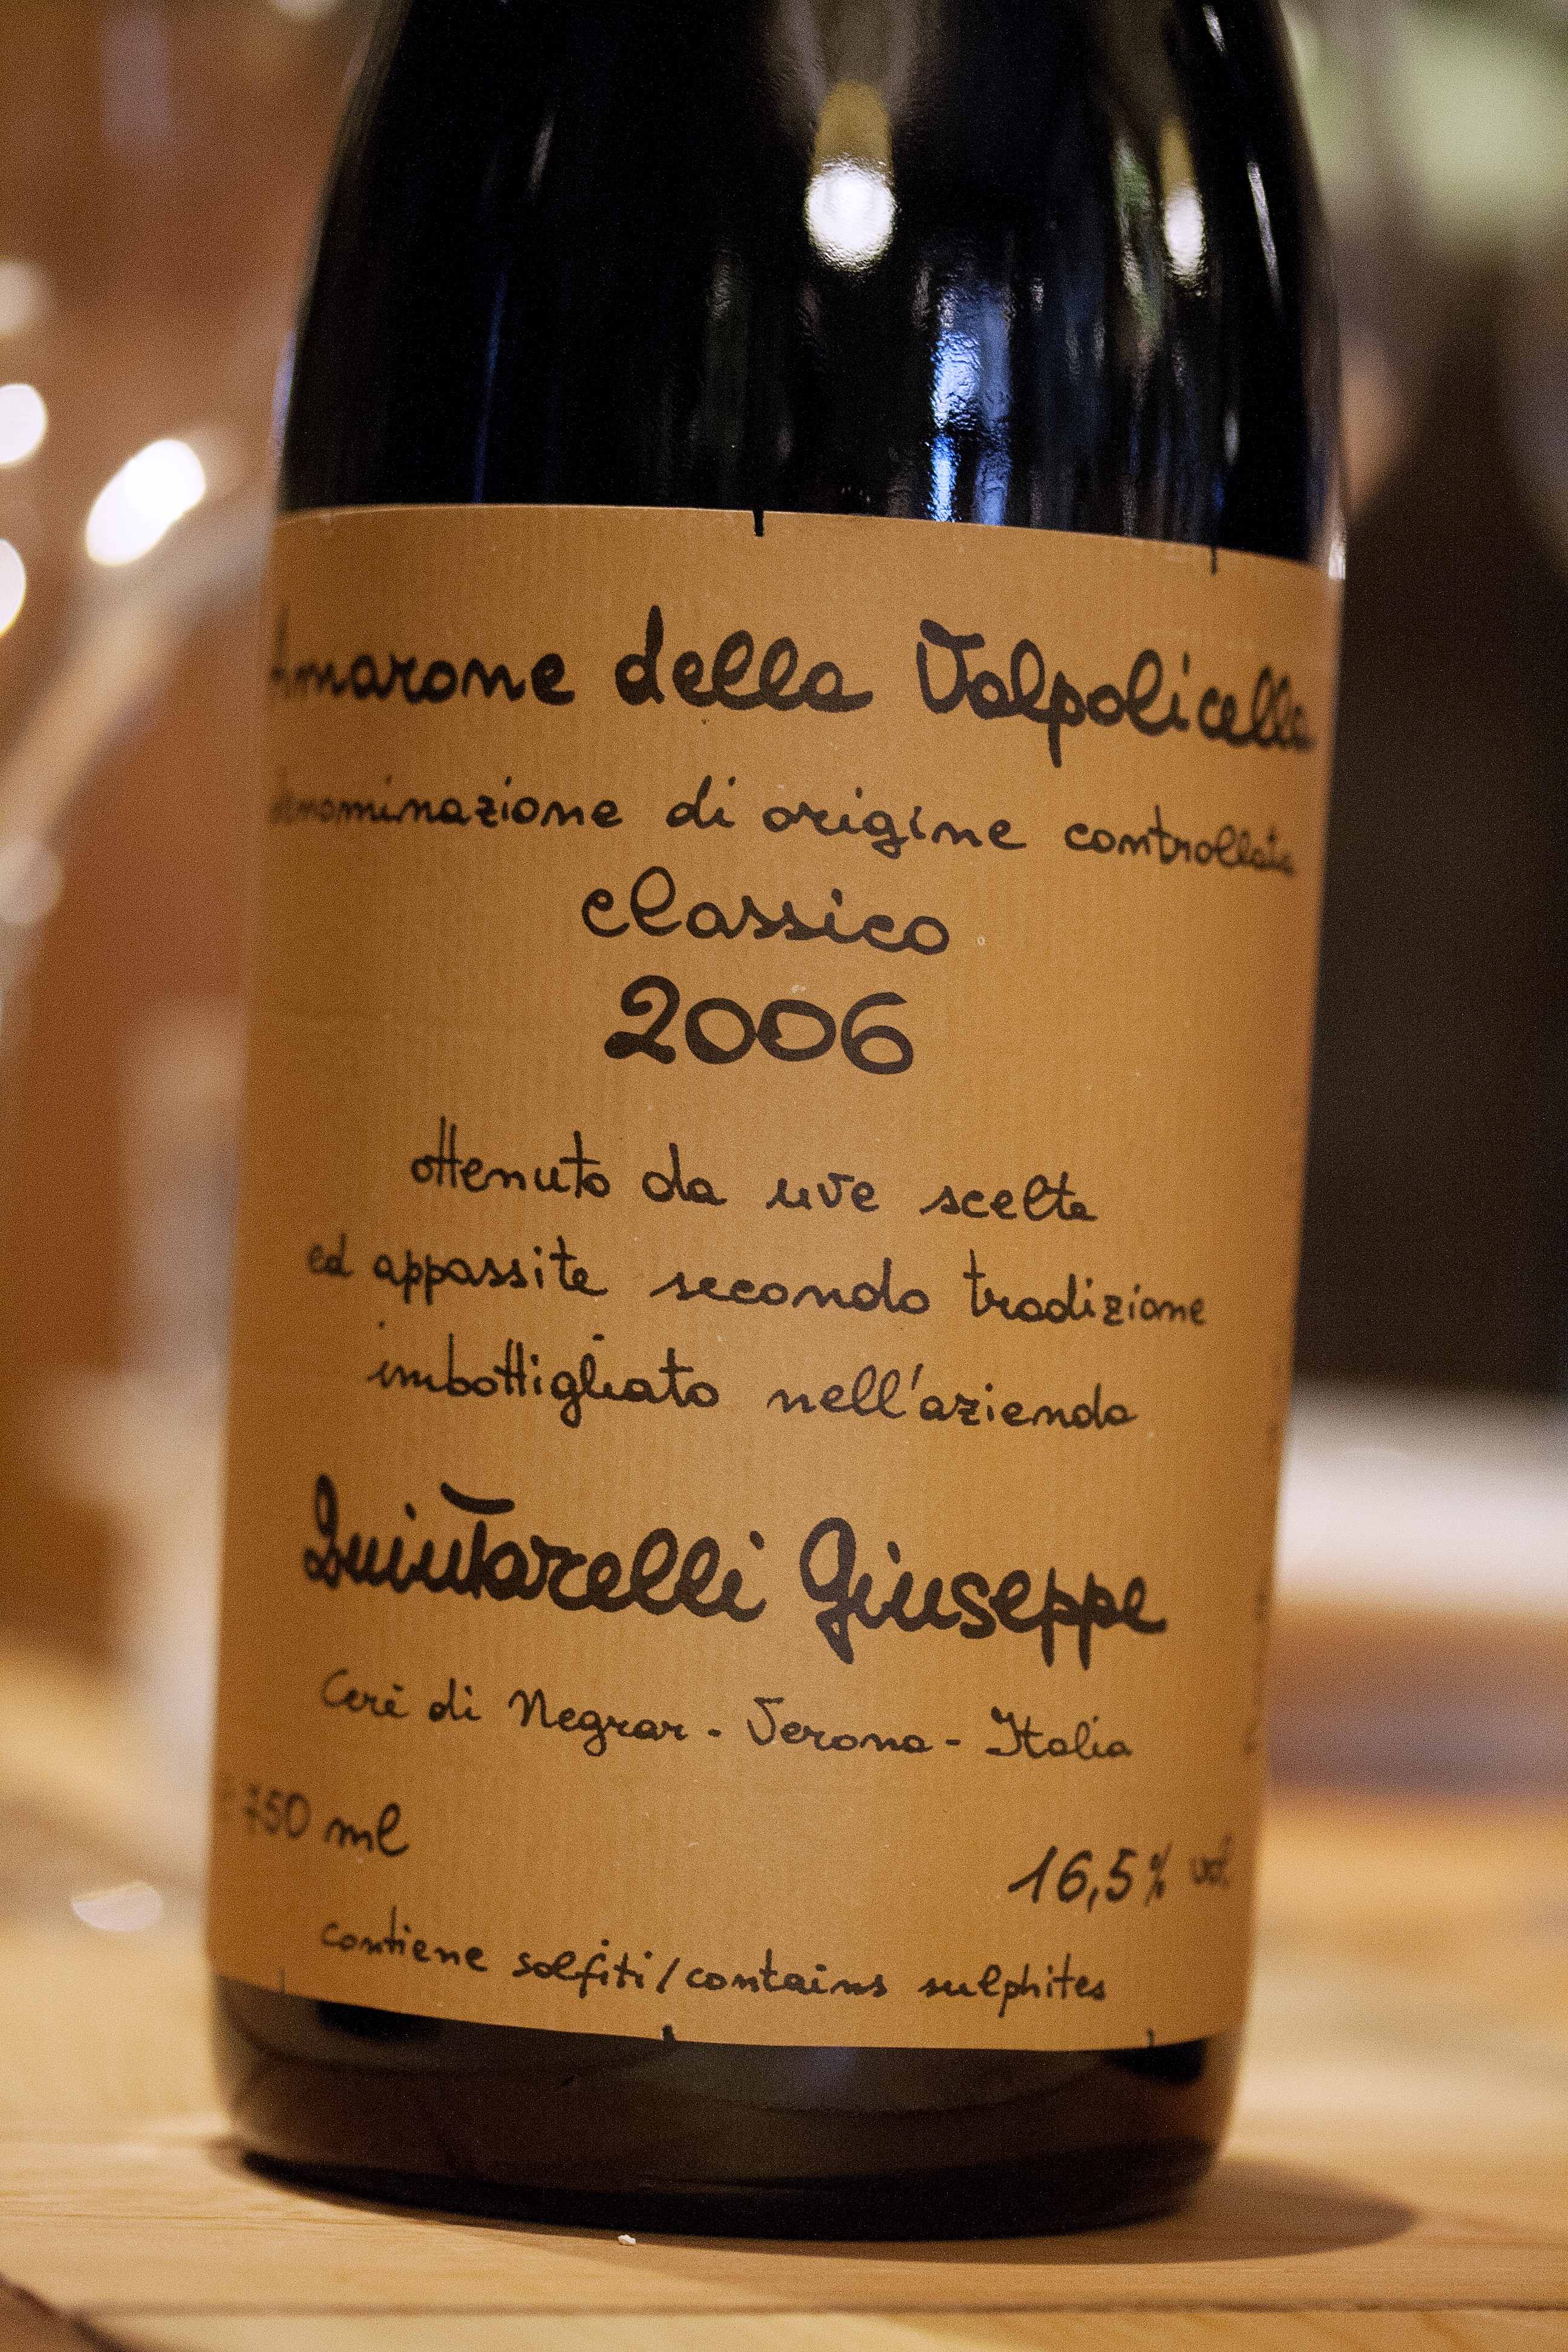 Amarone della Valpolicella
denominazione di origine controllata
classico
2006
ottenuto da uve scelte
ed appassite secondo tradizione
imbottigliato nell'azienda
Quintarelli Giuseppe
Cerè di Negrar - Verona - Italia
750 ml
16,5% vol
contiene solfiti/contains sulphites